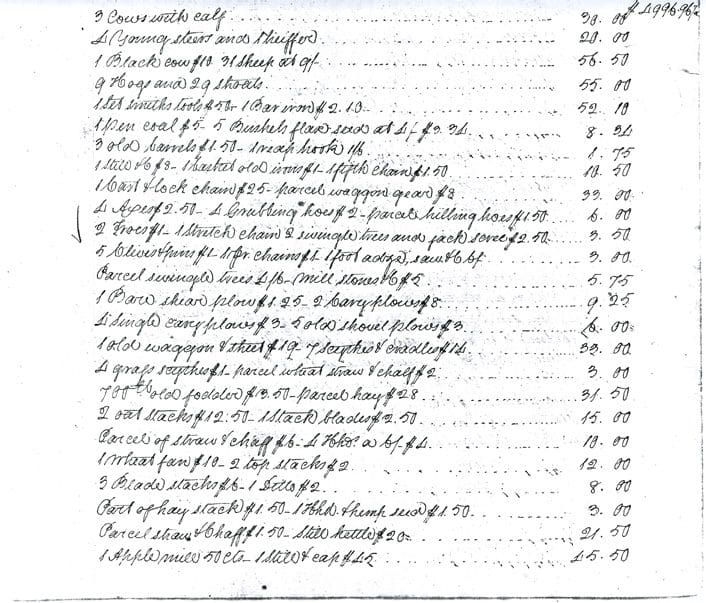 $4996.96¼
3 Cows with calf 30.00
4 Young steers and 1 heiffer 20.00
1 Black cow $10 31 sheep at 9/ 56.50
9 Hogs and 29 shoats 55.00
1 Set smiths tools $50 - 1 Bar iron $2.10 52.10
1 pen coal $5 - 5 Bushels flax seed at 4/ $3.34 8.34
3 old barrels $1.50 - 1 reap hook 1/6 1.75
1 Still &c $8 - 1 basket old irons $1 - 1 fifth chain $1.50 10.50
1 Cart & lock chain $25 - parcel waggon gear $8 33.00
4 Axes $2.50 - 4 Grubbing hoes $2 - parcel hilling hoes $1.50 6.00
2 Froes $1 - 1 Stretch chain 2 swingle trees and jack screw $2.50 3.50
5 Clives & pins $1 - 1 pr. chains $1 1 foot adze, saw &c 6/ 3.00
Parcel swingle trees 4/6 - Mill stones &c $5 5.75
1 Bare shear plow $1.25 - 2 Cary plows $8 9.25
4 single cary plows $3 - 5 old shovel plows $3 6.00
1 old waggon & $19 - 7 scythes & cradles $14 33.00
4 grass scythes $1 - parcel wheat straw & chaff $2 3.00
700 old fodder $3.50 - parcel hay $28 31.50
2 oat stacks $12.50 - 1 Stack blades $2.50 15.00
Parcel of straw & chaff $6 - 4 Hhds. a 6/ $4 10.00
1 Wheat fan $10 - 2 top stacks $2 12.00
3 Blade stacks $6 - 1 Ditto $2 8.00
Part of hay stack $1.50 - 1 Hhd. & hemp seed $1.50 3.00
Parcel shaw & Chaff $1.50 - Still kettle $20 21.50
1 Apple mill 50 cts - 1 Still & cap $45 45.50